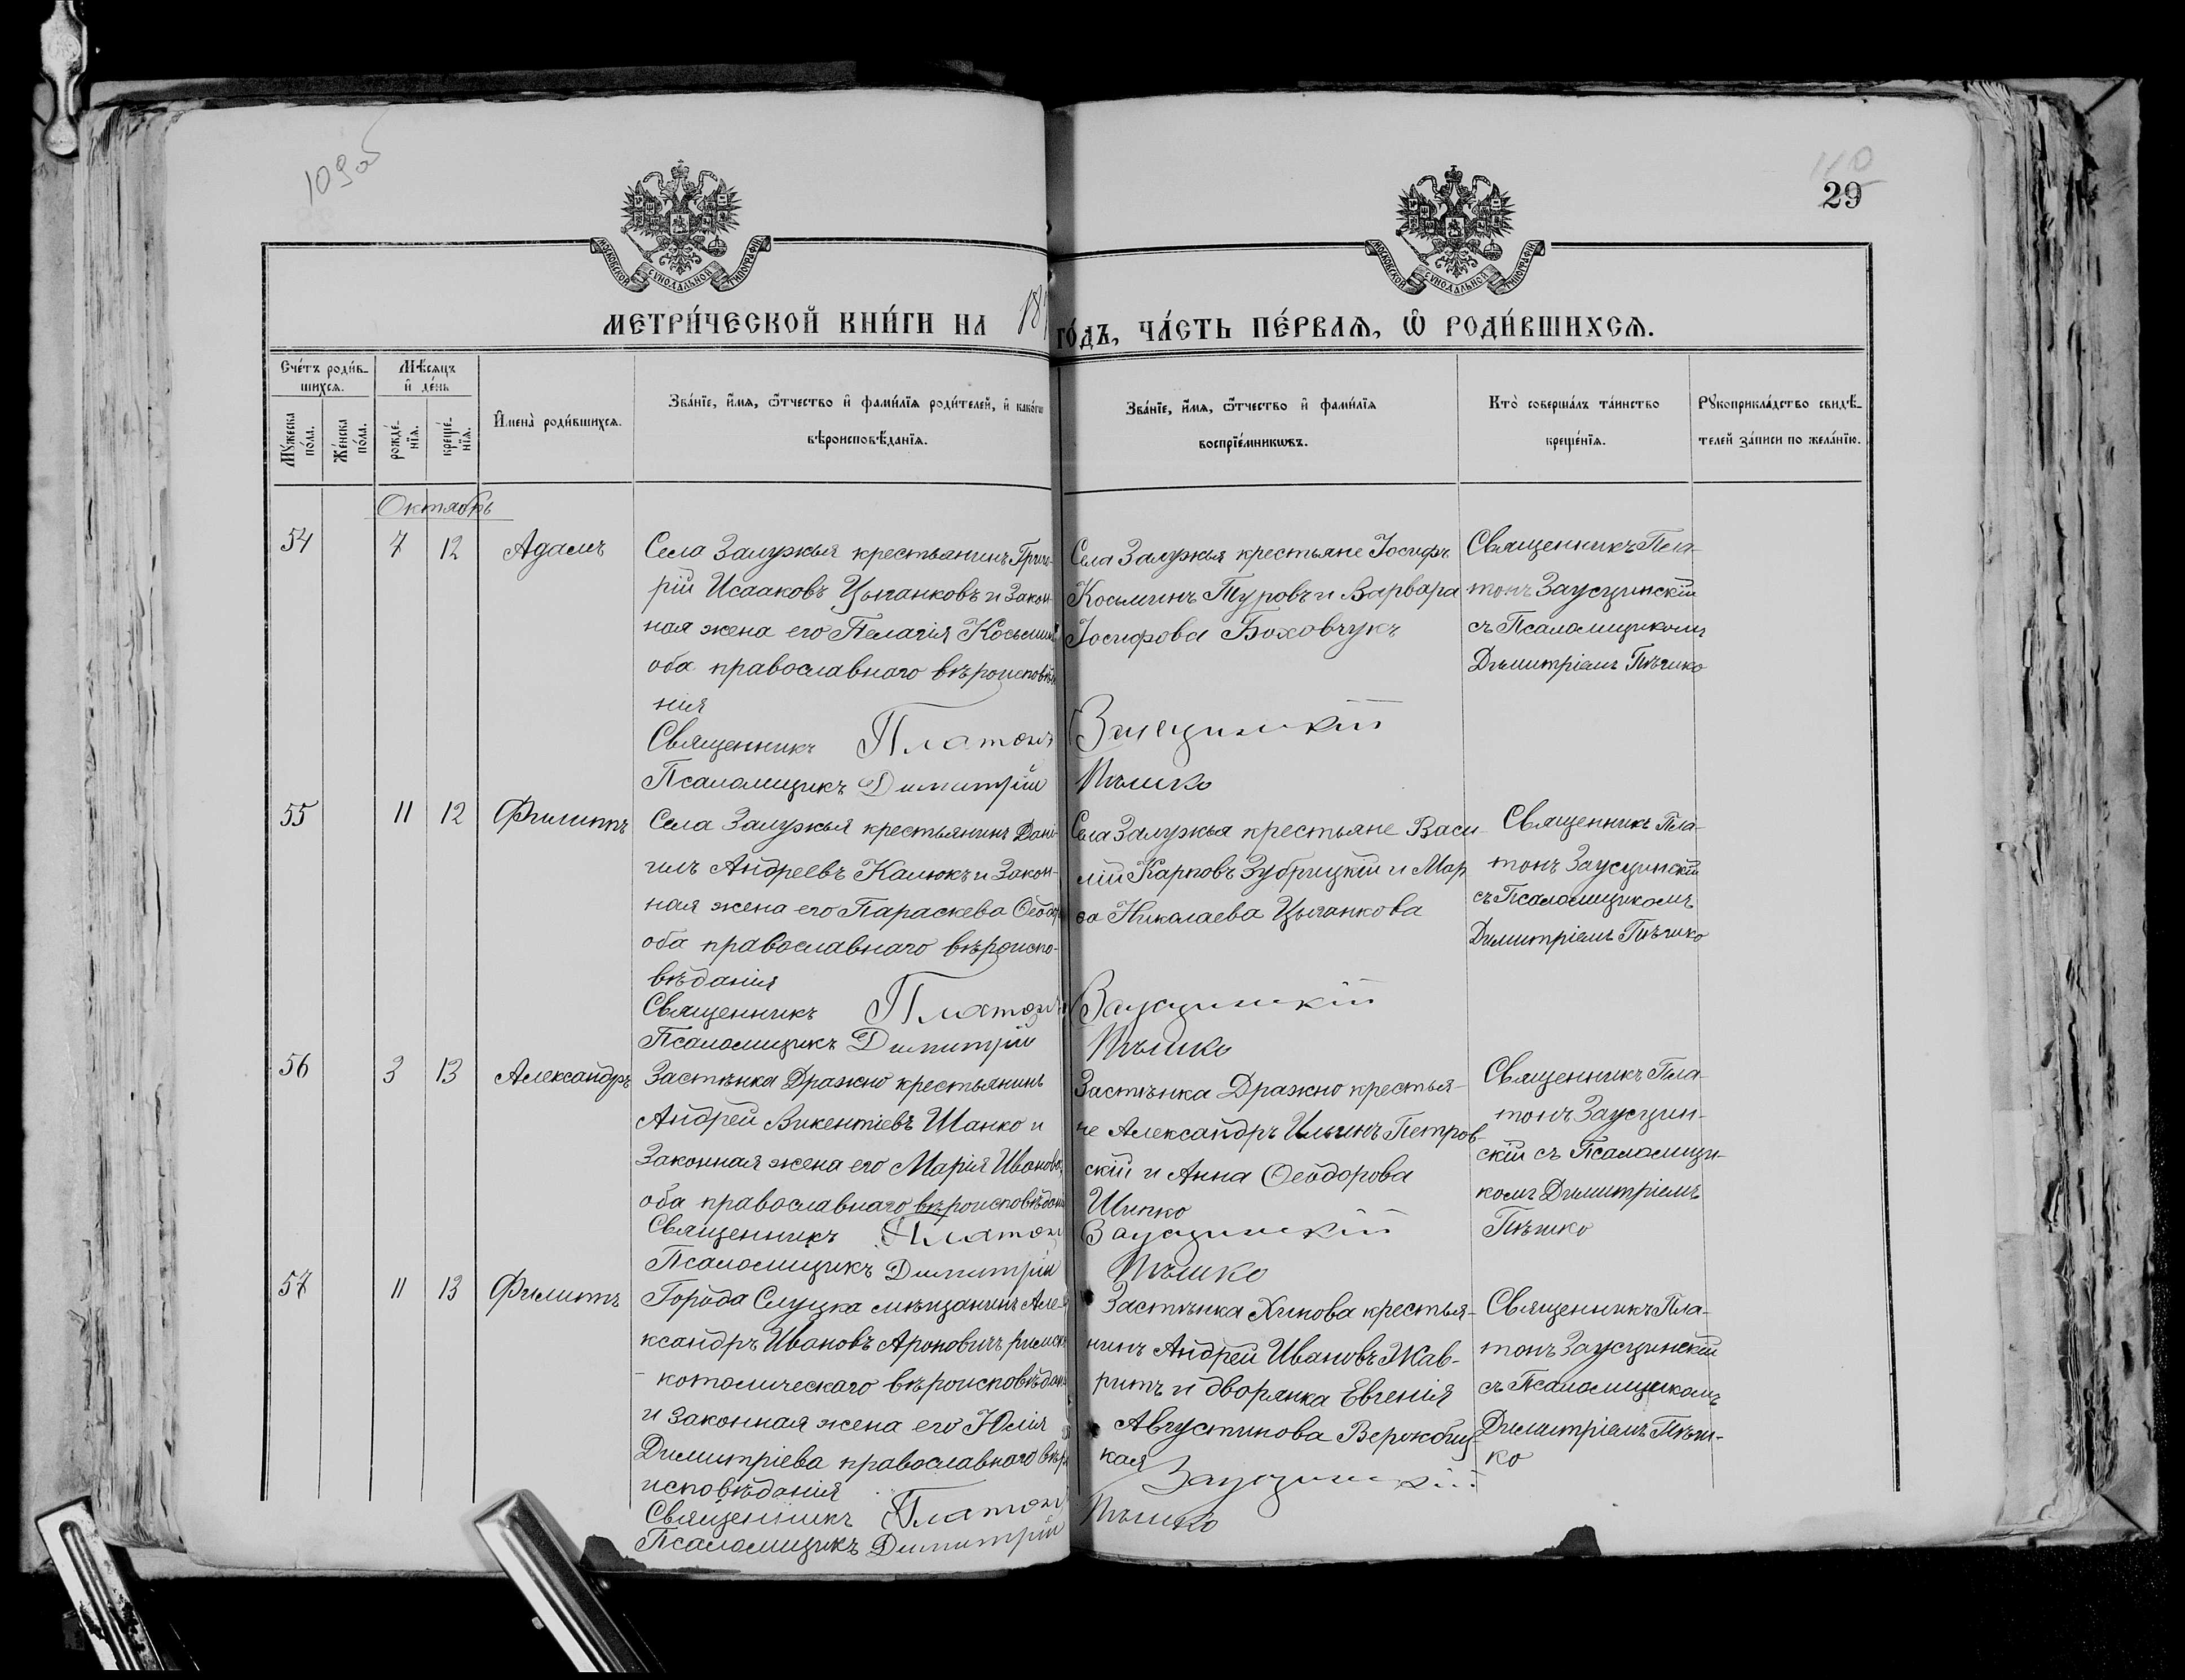 109об
110
29
МОСКОВСКОЙ СУНОДАЛЬНОЙ ТИПОГРАФІИ
МОСКОВСКОЙ СУНОДАЛЬНОЙ ТИПОГРАФІИ
МЕТРИ́ЧЕСКОЙ КНИ́ГИ НА 18
ГО́ДЪ, ЧА́СТЬ ПЕ́РВАѦ, Ѿ РОДИ́ВШИХСѦ.
Сче́тъ роди́в-
шихсѧ.
Мꙋ́жеска по́ла.
Же́нска по́ла.
Мѣ́сѧцъ
и҆ де́нь
рожде́-нїѧ.
креще́-нїѧ.
И҆мена̀ роди́вшихсѧ.
Зва́нїе, и҆́мѧ, ѻ҆́тчество и҆ фами́лїѧ роди́телей, и҆ како́гѡ
вѣроисповѣ́данїѧ.
Зва́нїе, и҆́мѧ, ѻ҆́тчество и҆ фами́лїѧ
воспрїе́мникѡвъ.
Кто̀ соверша́лъ та́инство
креще́нїѧ.
Рꙋкоприкла́дство свидѣ́-
телей за́писи по жела́нїю.
Октябрь
54
7
12
Адамъ
Села Залужья крестьянинъ Григо-
рій Исааковъ Цыганковъ и закон-
ная жена его Пелагія Косьмина
оба православнаго вѣроисповѣда
нія
Священникъ Платонъ Заусцинскій
Псаломщикъ Димитрій Пѣшко
Села Залужья крестьяне Іосифъ
Косьминъ Туровъ и Варвара
Іосифова Боховчукъ
Священникъ Пла-
тонъ Заусцинскій
съ Псаломщикомъ
Димитріемъ Пѣшко
55
11
12
Филиппъ
Села Залужья крестьянинъ Дані-
илъ Андреевъ Калюкъ и закон-
ная жена его Параскева Ѳеодор
оба православнаго вѣроиспо-
вѣданія
Священникъ Платонъ Заусцинскій
Псаломщикъ Димитрій Пѣшко
Села Залужья крестьяне Васи-
лій Карповъ Зубрицкій и Мар
ѳа Николаева Цыганкова
Священникъ Пла-
тонъ Заусцинскій
съ Псаломщикомъ
Димитріемъ Пѣшко
56
3
13
Александръ
Застѣнка Дражно крестьянинъ
Андрей Викентіевъ Шанко и
законная жена его Марія Иванова,
оба православнаго вѣроисповѣдан
Священникъ Платонъ Заусцинскій
Псаломщикъ Димитрій Пѣшко
Застѣнка Дражно крестья-
не Александръ Ильинъ Петров-
скій и Анна Ѳеодорова
Шипко
Священникъ Пла-
тонъ Заусцин-
скій съ Псаломщи-
комъ Димитріемъ
Пѣшко
57
11
13
Филиппъ
Города Слуцка мѣщанинъ Але-
ксандръ Ивановъ Ароновичъ римск
-католическаго вѣроисповѣдан
и законная жена его Юлія
Димитріева православнаго вѣро
исповѣданія
Священникъ Платонъ Заусцинскій
Псаломщикъ Димитрій Пѣшко
Застѣнка Хинова крестья-
нинъ Андрей Ивановъ Жав-
ритъ и дворянка Евгенія
Августинова
кая
Священникъ Пла-
тонъ Заусцинскій
съ Псаломщикомъ
Димитріемъ Пѣш-
ко